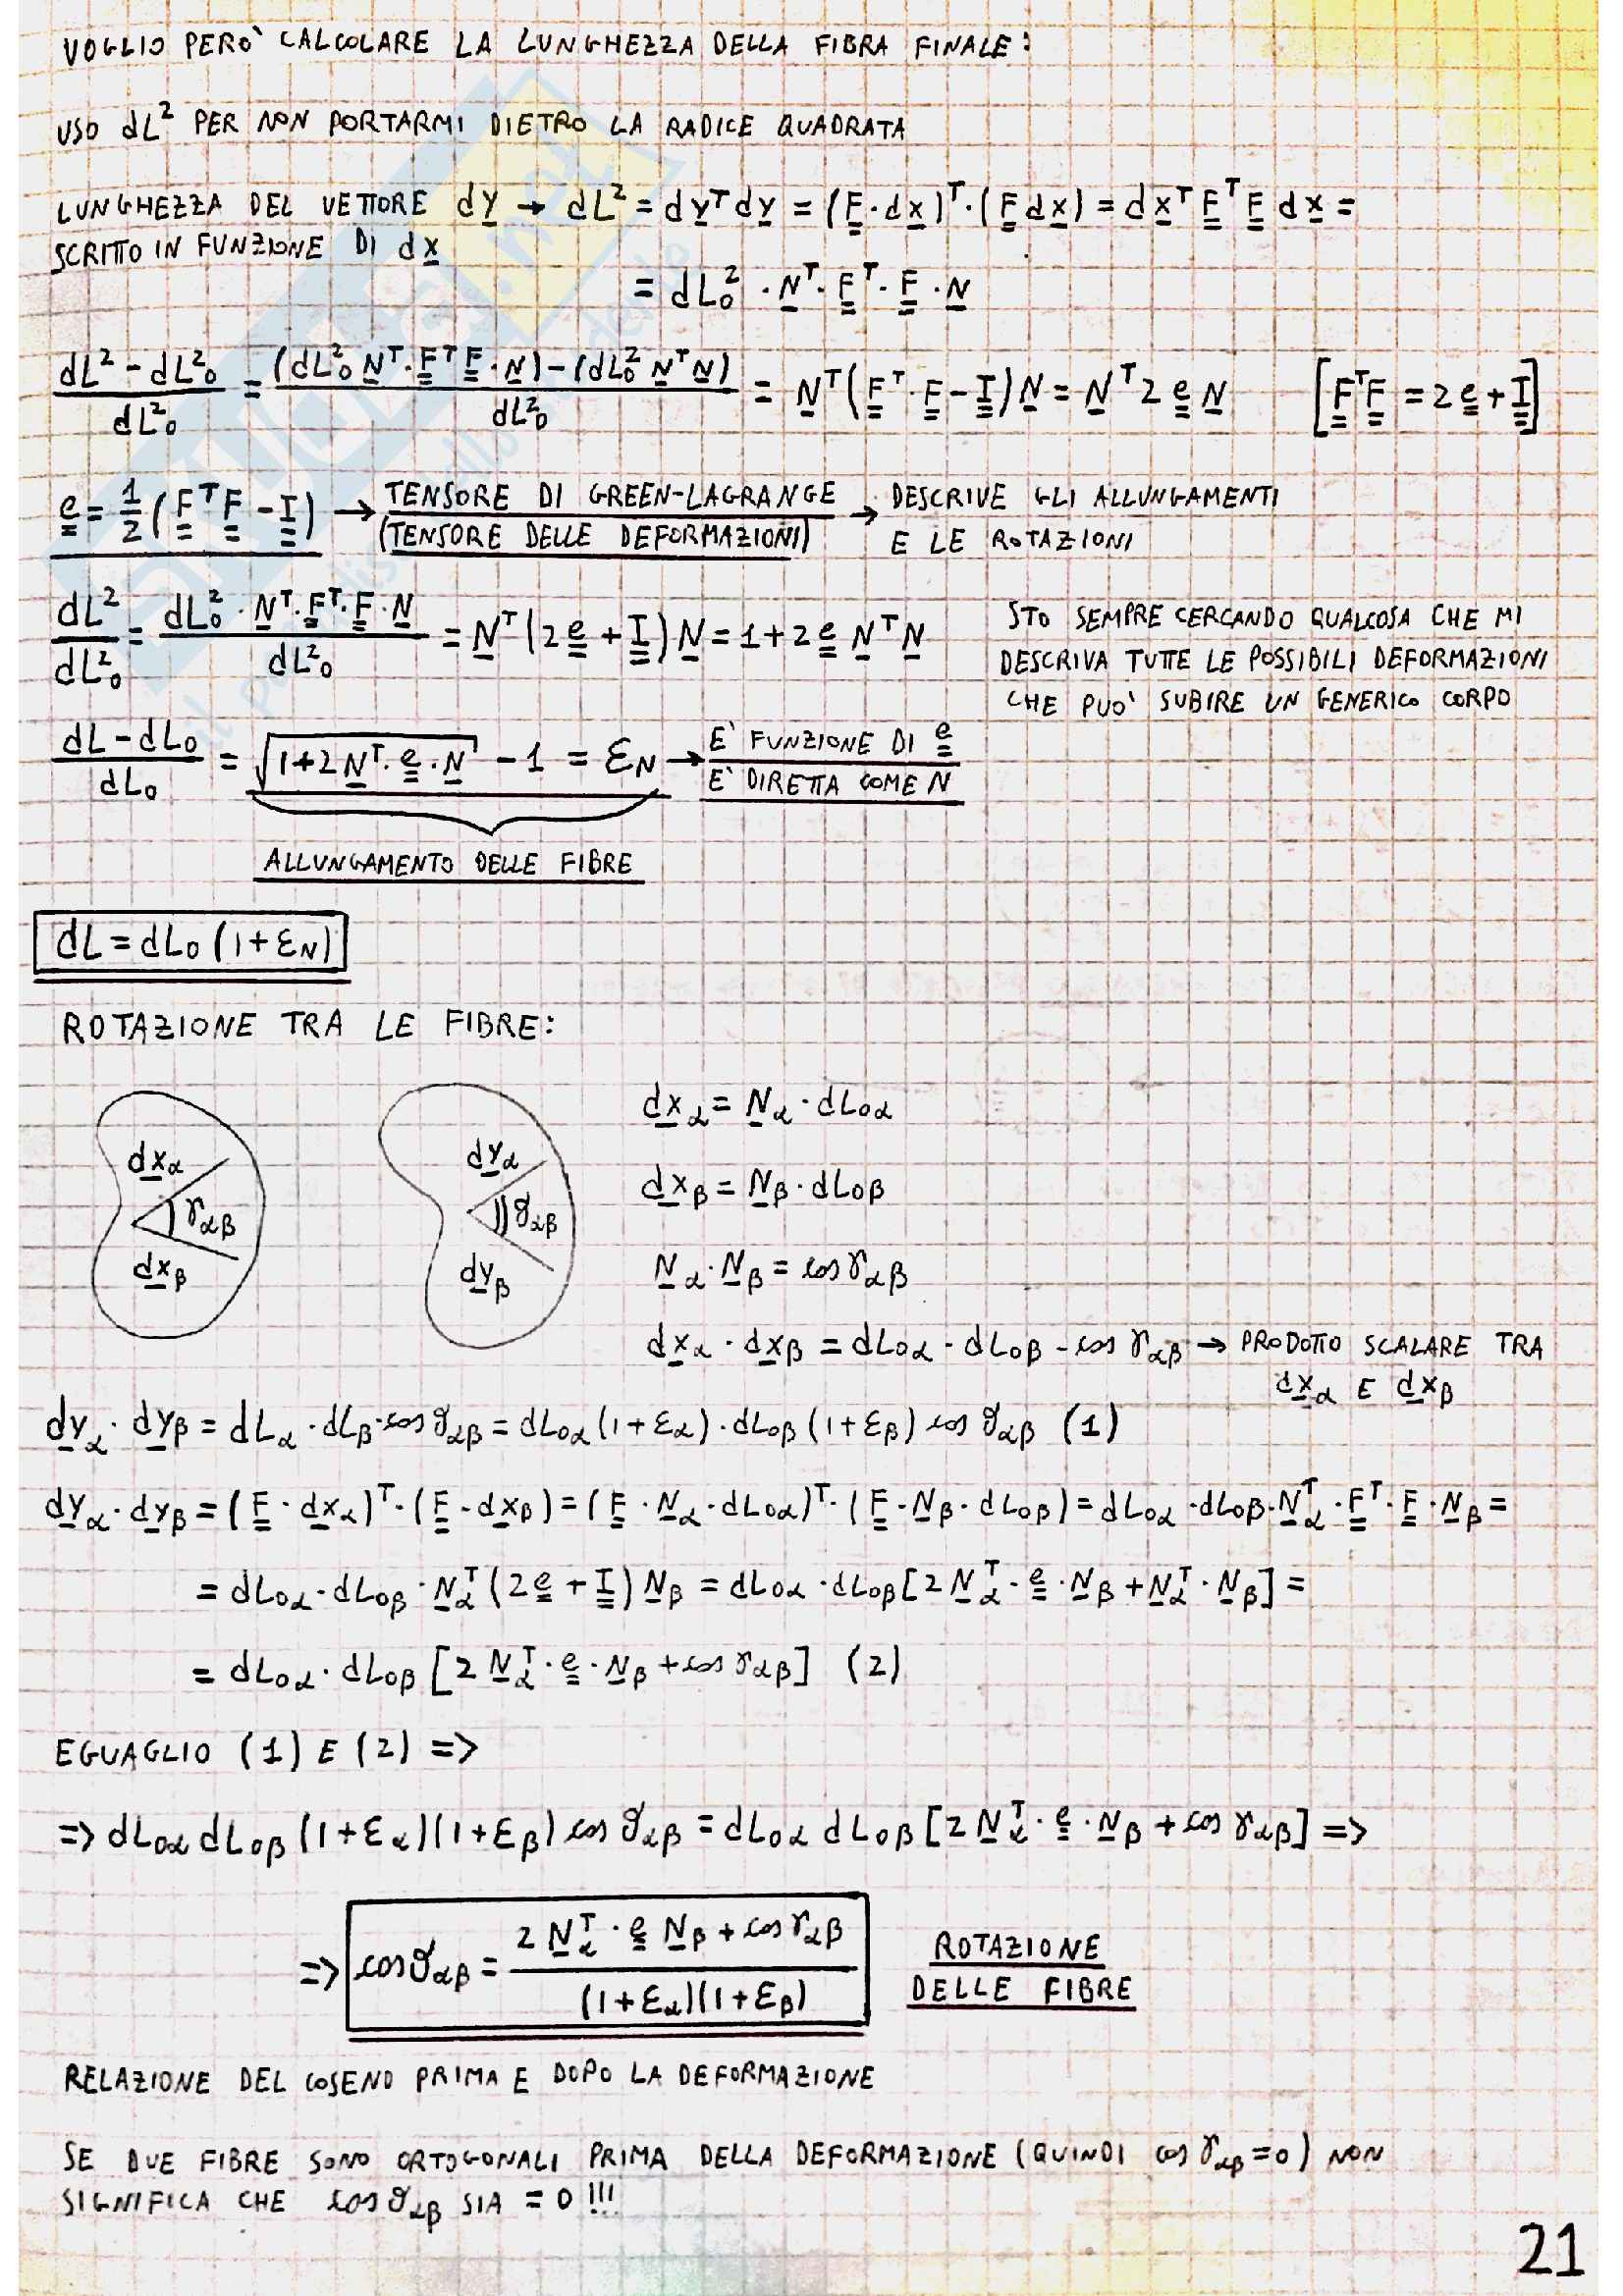 VOGLIO PERO' CALCOLARE LA LUNGHEZZA DELLA FIBRA FINALE:
USO dL² PER NON PORTARMI DIETRO LA RADICE QUADRATA
LUNGHEZZA DEL VETTORE dy → dL² = dyᵀdy = (F·dx)ᵀ·(F dx) = dxᵀ Fᵀ F dx =
SCRITTO IN FUNZIONE DI dx
= dL₀² · Nᵀ· Fᵀ· F · N
(dL² - dL₀²)/dL₀² = ((dL₀² Nᵀ·Fᵀ F·N) - (dL₀² Nᵀ N))/dL₀² = Nᵀ(Fᵀ·F - I)N = Nᵀ 2 e N [FᵀF = 2e + I]
e = 1/2 (Fᵀ F - I) → TENSORE DI GREEN-LAGRANGE → DESCRIVE GLI ALLUNGAMENTI
(TENSORE DELLE DEFORMAZIONI) E LE ROTAZIONI
dL²/dL₀² = (dL₀² · Nᵀ·Fᵀ·F·N)/dL₀² = Nᵀ(2e + I)N = 1+2e NᵀN
STO SEMPRE CERCANDO QUALCOSA CHE MI
DESCRIVA TUTTE LE POSSIBILI DEFORMAZIONI
CHE PUO' SUBIRE UN GENERICO CORPO
(dL - dL₀)/dL₀ = √(1+2Nᵀ·e·N) - 1 = εN → E' FUNZIONE DI e
E' DIRETTA COME N
ALLUNGAMENTO DELLE FIBRE
dL = dL₀ (1+εN)
ROTAZIONE TRA LE FIBRE:
dxα
γαβ
dxβ
dyα
ϑαβ
dyβ
dxα = Nα · dL₀α
dxβ = Nβ · dL₀β
Nα·Nβ = cos γαβ
dxα · dxβ = dL₀α · dL₀β · cos γαβ → PRODOTTO SCALARE TRA
dxα E dxβ
dyα · dyβ = dLα · dLβ·cos ϑαβ = dL₀α (1+εα) · dL₀β (1+εβ) cos ϑαβ (1)
dyα · dyβ = (F · dxα)ᵀ·(F · dxβ) = (F · Nα · dL₀α)ᵀ· (F · Nβ · dL₀β) = dL₀α · dL₀β·Nαᵀ·Fᵀ·F·Nβ =
= dL₀α · dL₀β · Nαᵀ (2e + I) Nβ = dL₀α · dL₀β [2 Nαᵀ· e · Nβ + Nαᵀ · Nβ] =
= dL₀α · dL₀β [2 Nαᵀ · e · Nβ + cos γαβ] (2)
EGUAGLIO (1) E (2) =>
=> dL₀α dL₀β (1+εα)(1+εβ) cos ϑαβ = dL₀α dL₀β [2 Nαᵀ · e · Nβ + cos γαβ] =>
=> cos ϑαβ = (2 Nαᵀ · e Nβ + cos γαβ)/((1+εα)(1+εβ)) ROTAZIONE
DELLE FIBRE
RELAZIONE DEL COSENO PRIMA E DOPO LA DEFORMAZIONE
SE DUE FIBRE SONO ORTOGONALI PRIMA DELLA DEFORMAZIONE (QUINDI cos γαβ = 0) NON
SIGNIFICA CHE cos ϑαβ SIA = 0 !!!
21